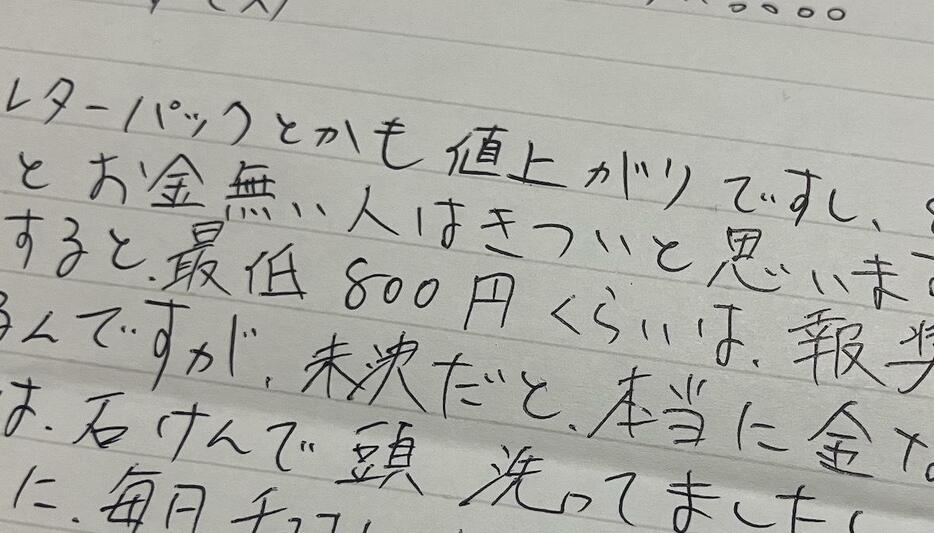 レターパックとかも値上がりですし、
とお金無い人はきついと思います
すると、最低800円くらいは、報奨
るんですが、未決だと、本当に金な
は、石けんで頭洗ってました
に、毎月チッ